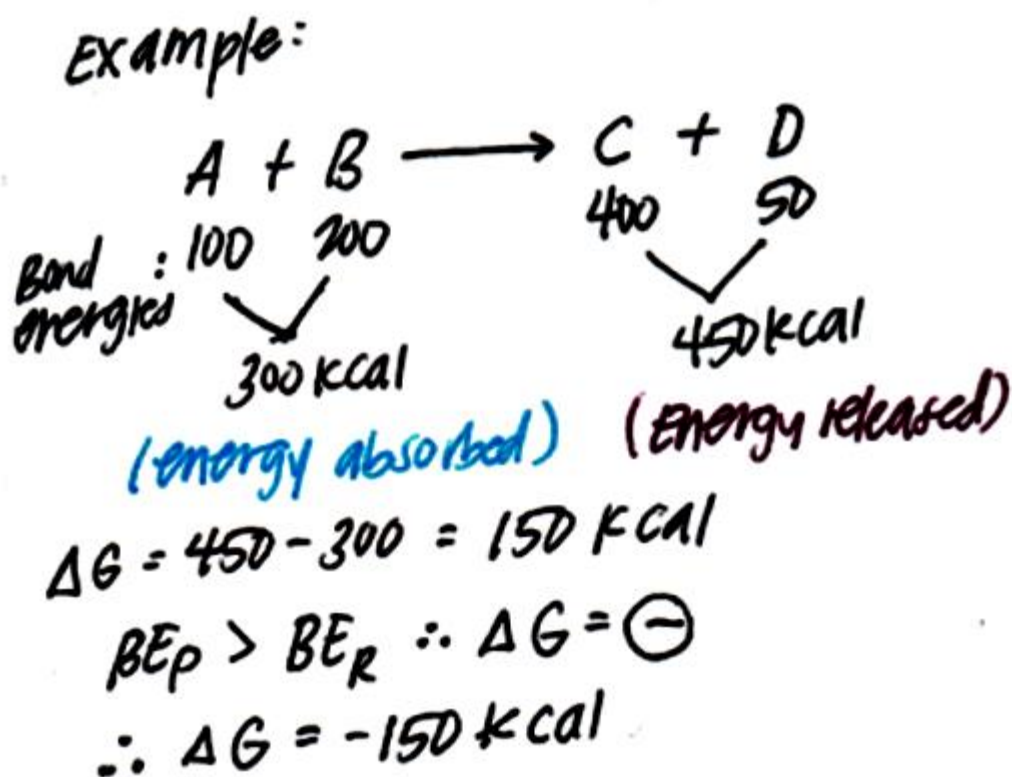 Example:
A + B → C + D
Bond energies : 100 200 400 50
300 kcal 450 kcal
(energy absorbed) (Energy released)
ΔG = 450 - 300 = 150 kcal
BEP > BER ∴ ΔG = ⊖
∴ ΔG = -150 kcal